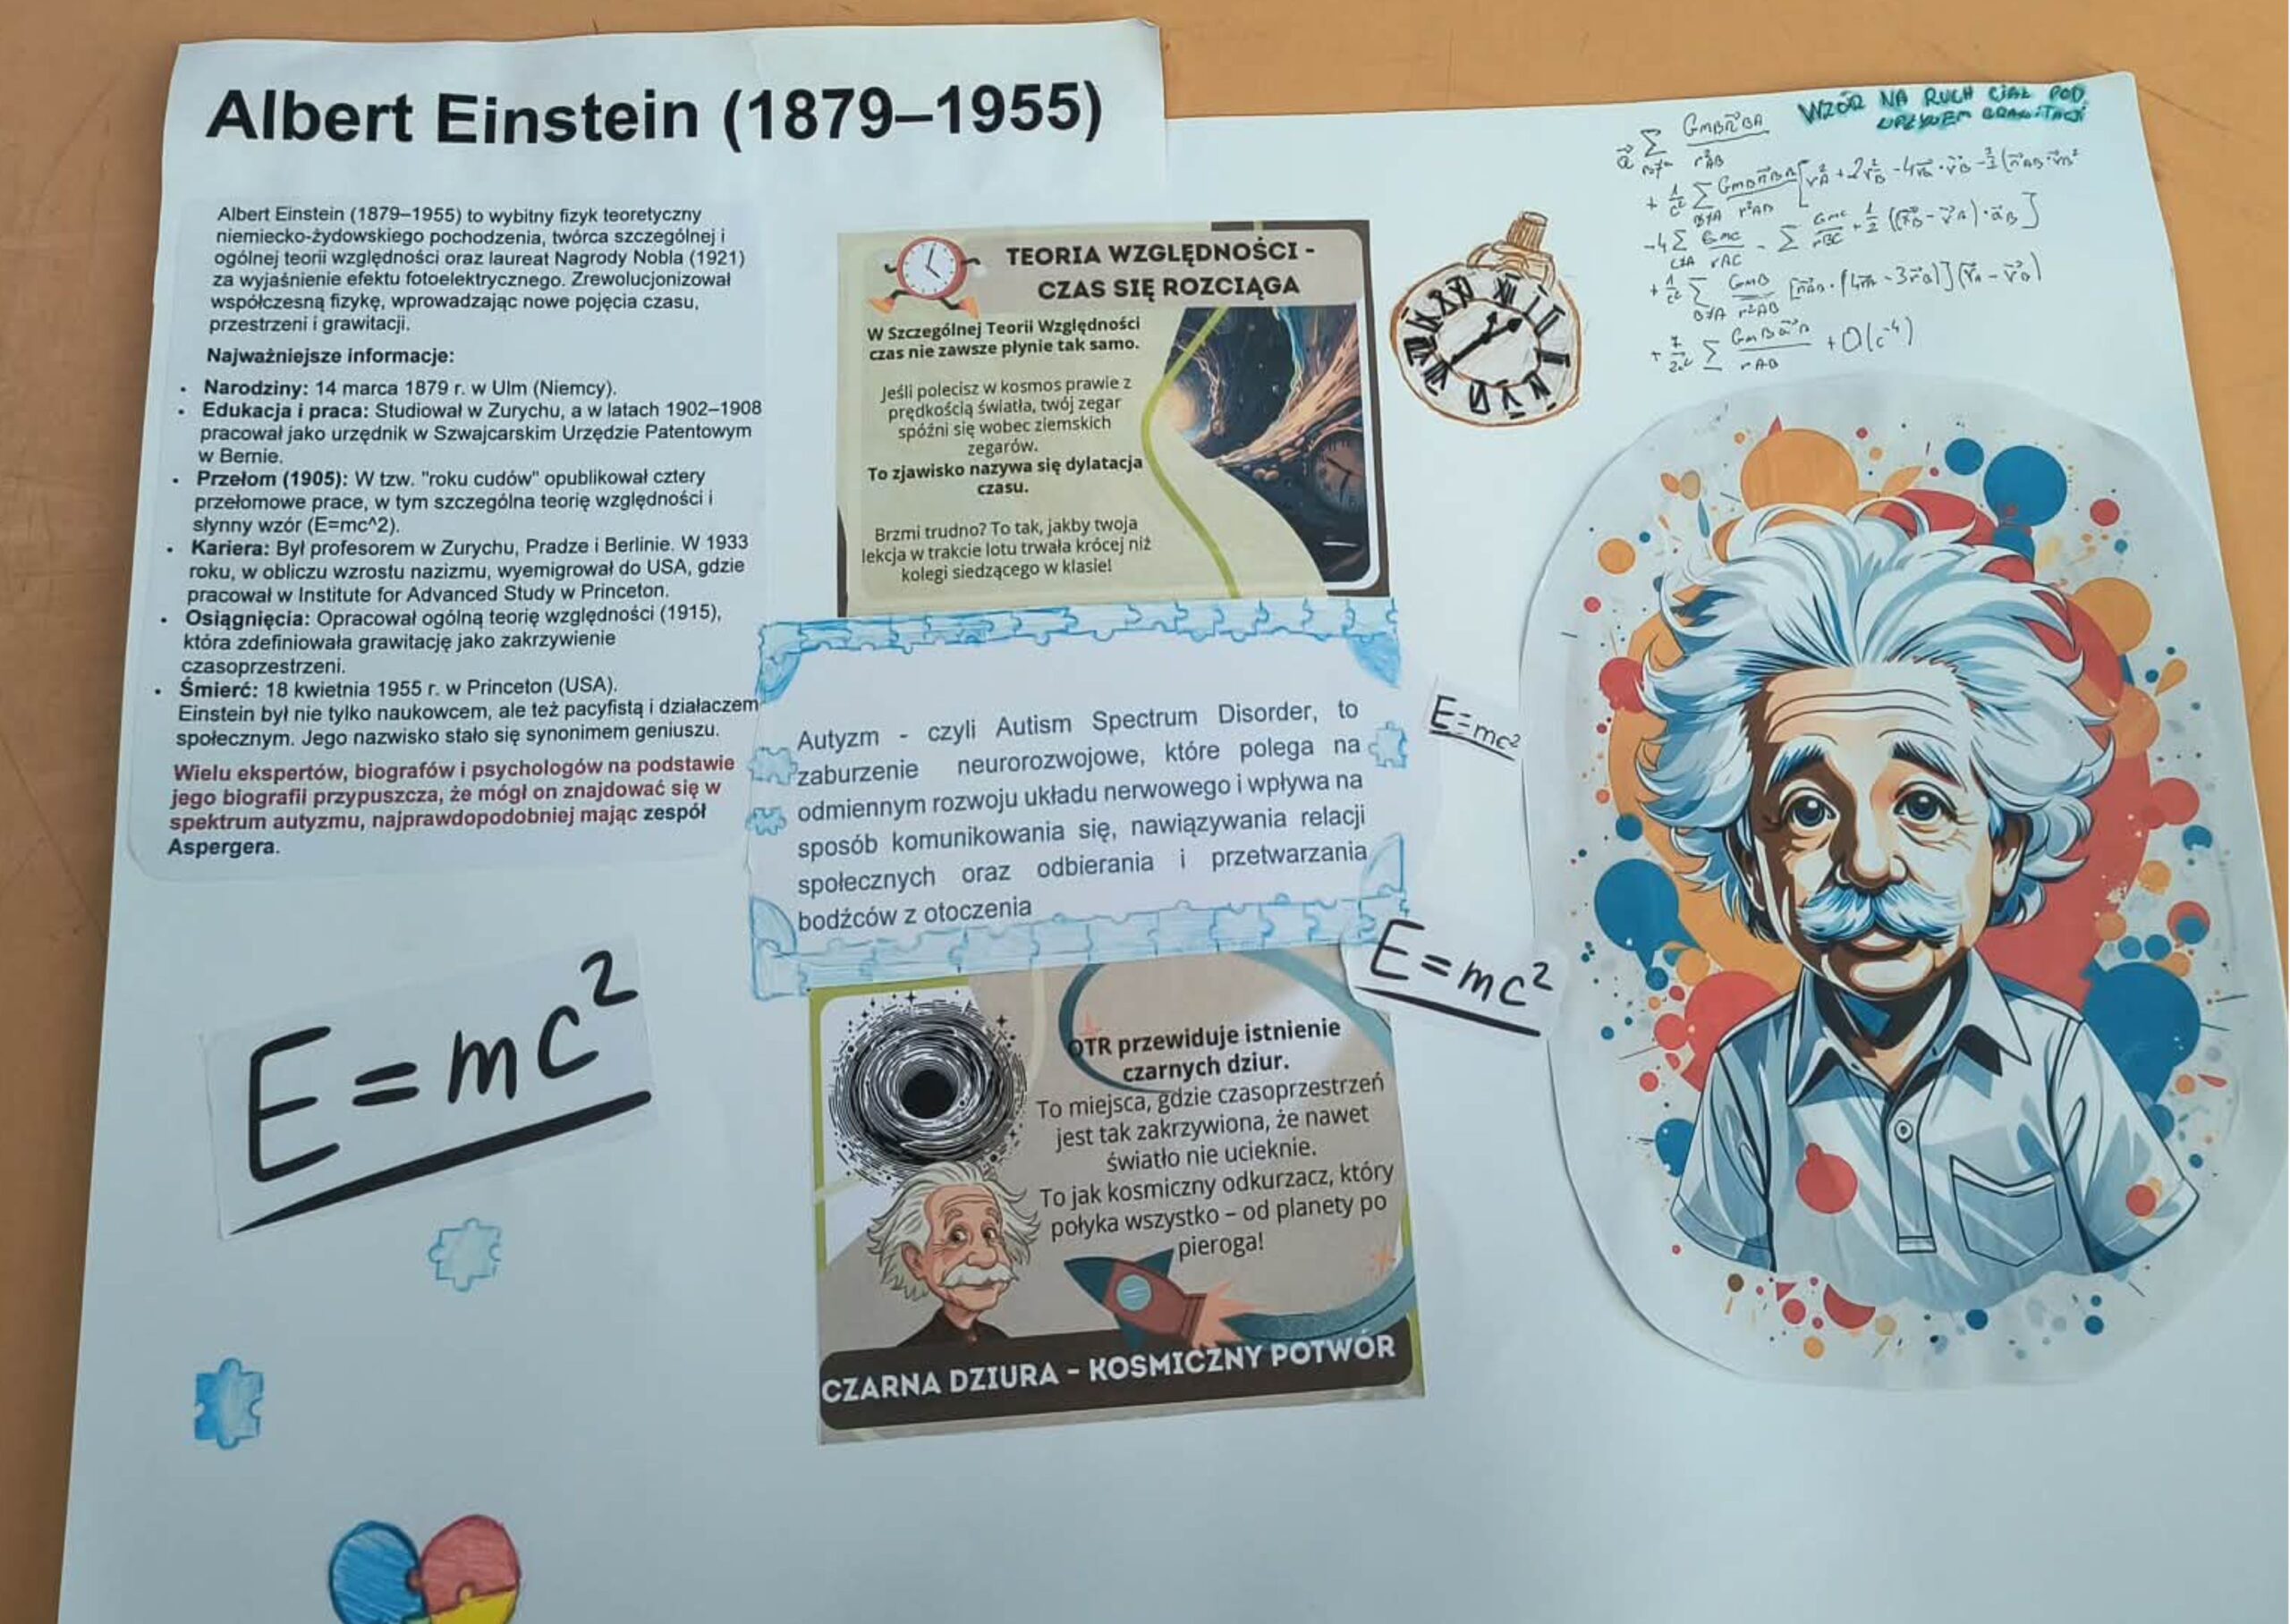 Albert Einstein (1879–1955)
Albert Einstein (1879–1955) to wybitny fizyk teoretyczny
niemiecko-żydowskiego pochodzenia, twórca szczególnej i
ogólnej teorii względności oraz laureat Nagrody Nobla (1921)
za wyjaśnienie efektu fotoelektrycznego. Zrewolucjonizował
współczesną fizykę, wprowadzając nowe pojęcia czasu,
przestrzeni i grawitacji.
Najważniejsze informacje:
• Narodziny: 14 marca 1879 r. w Ulm (Niemcy).
• Edukacja i praca: Studiował w Zurychu, a w latach 1902–1908
pracował jako urzędnik w Szwajcarskim Urzędzie Patentowym
w Bernie.
• Przełom (1905): W tzw. "roku cudów" opublikował cztery
przełomowe prace, w tym szczególna teorię względności i
słynny wzór (E=mc^2).
• Kariera: Był profesorem w Zurychu, Pradze i Berlinie. W 1933
roku, w obliczu wzrostu nazizmu, wyemigrował do USA, gdzie
pracował w Institute for Advanced Study w Princeton.
• Osiągnięcia: Opracował ogólną teorię względności (1915),
która zdefiniowała grawitację jako zakrzywienie
czasoprzestrzeni.
• Śmierć: 18 kwietnia 1955 r. w Princeton (USA).
Einstein był nie tylko naukowcem, ale też pacyfistą i działaczem
społecznym. Jego nazwisko stało się synonimem geniuszu.
Wielu ekspertów, biografów i psychologów na podstawie
jego biografii przypuszcza, że mógł on znajdować się w
spektrum autyzmu, najprawdopodobniej mając zespół
Aspergera.
E=mc²
TEORIA WZGLĘDNOŚCI -
CZAS SIĘ ROZCIĄGA
W Szczególnej Teorii Względności
czas nie zawsze płynie tak samo.
Jeśli polecisz w kosmos prawie z
prędkością światła, twój zegar
spóźni się wobec ziemskich
zegarów.
To zjawisko nazywa się dylatacja
czasu.
Brzmi trudno? To tak, jakby twoja
lekcja w trakcie lotu trwała krócej niż
kolegi siedzącego w klasie!
Autyzm - czyli Autism Spectrum Disorder, to
zaburzenie neurorozwojowe, które polega na
odmiennym rozwoju układu nerwowego i wpływa na
sposób komunikowania się, nawiązywania relacji
społecznych oraz odbierania i przetwarzania
bodźców z otoczenia
E=mc²
E=mc²
OTR przewiduje istnienie
czarnych dziur.
To miejsca, gdzie czasoprzestrzeń
jest tak zakrzywiona, że nawet
światło nie ucieknie.
To jak kosmiczny odkurzacz, który
połyka wszystko – od planety po
pieroga!
CZARNA DZIURA - KOSMICZNY POTWÓR
WZÓR NA RUCH CIAŁ POD
WPŁYWEM GRAWITACJI
+ O(c⁻⁴)